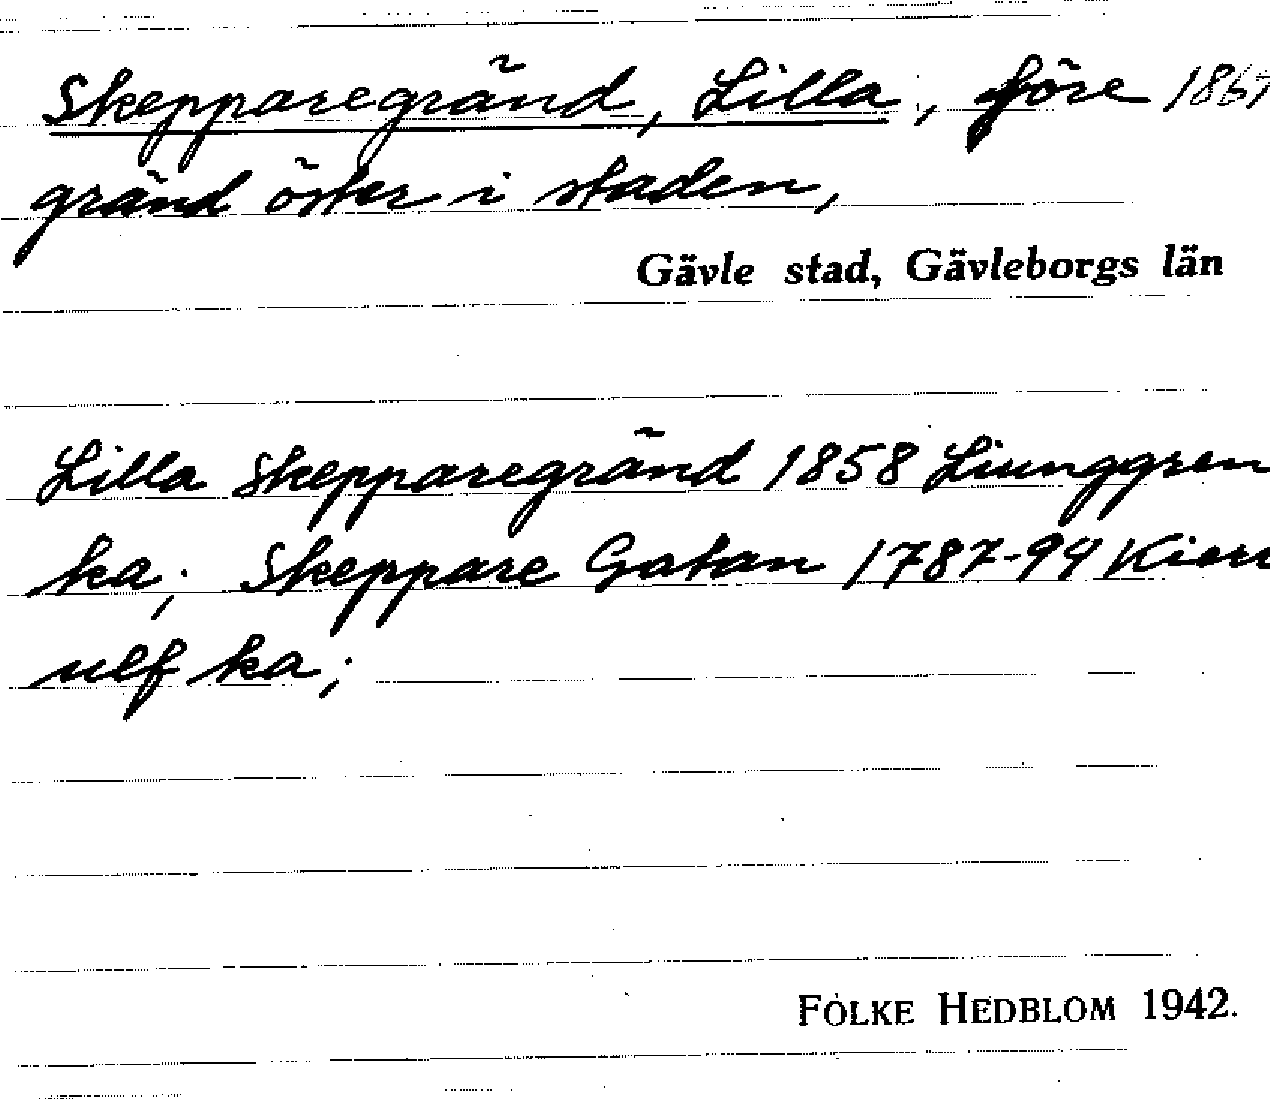 Skepparegränd, Lilla, före 1867
gränd öster i staden,
Gävle stad, Gävleborgs län
Lilla Skepparegränd 1858 Liunggren
ka; Skeppare Gatan 1787-94 Kier
ulf ka;
FOLKE HEDBLOM 1942.